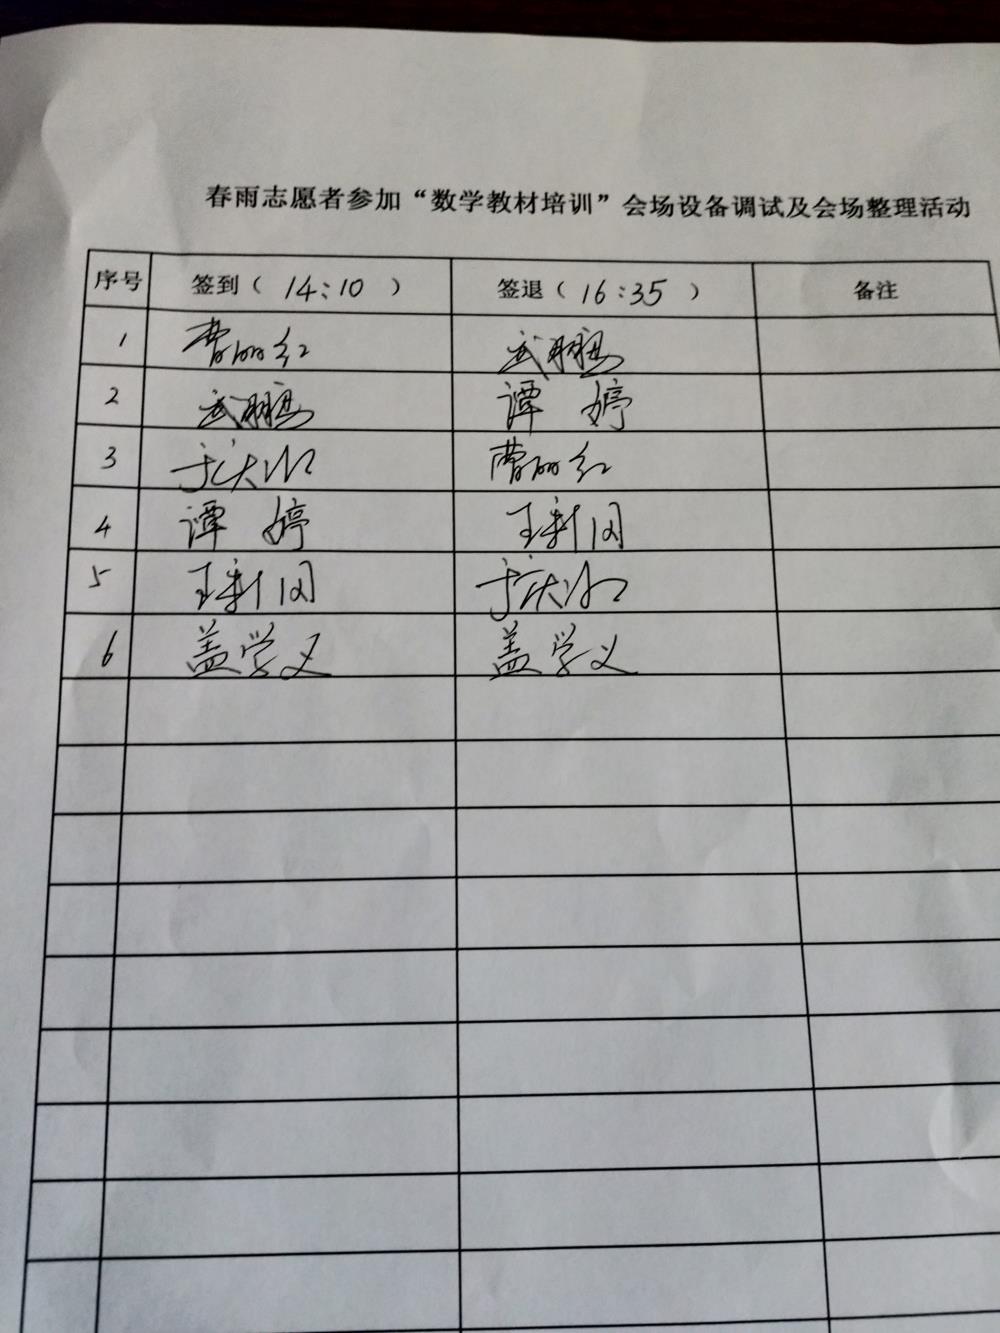 春雨志愿者参加“数学教材培训”会场设备调试及会场整理活动
序号 签到（14:10） 签退（16:35） 备注
1 曹丽红 武鹏
2 武鹏 谭婷
3 于庆 曹丽红
4 谭婷 王新国
5 王新国 于庆
6 盖学义 盖学义